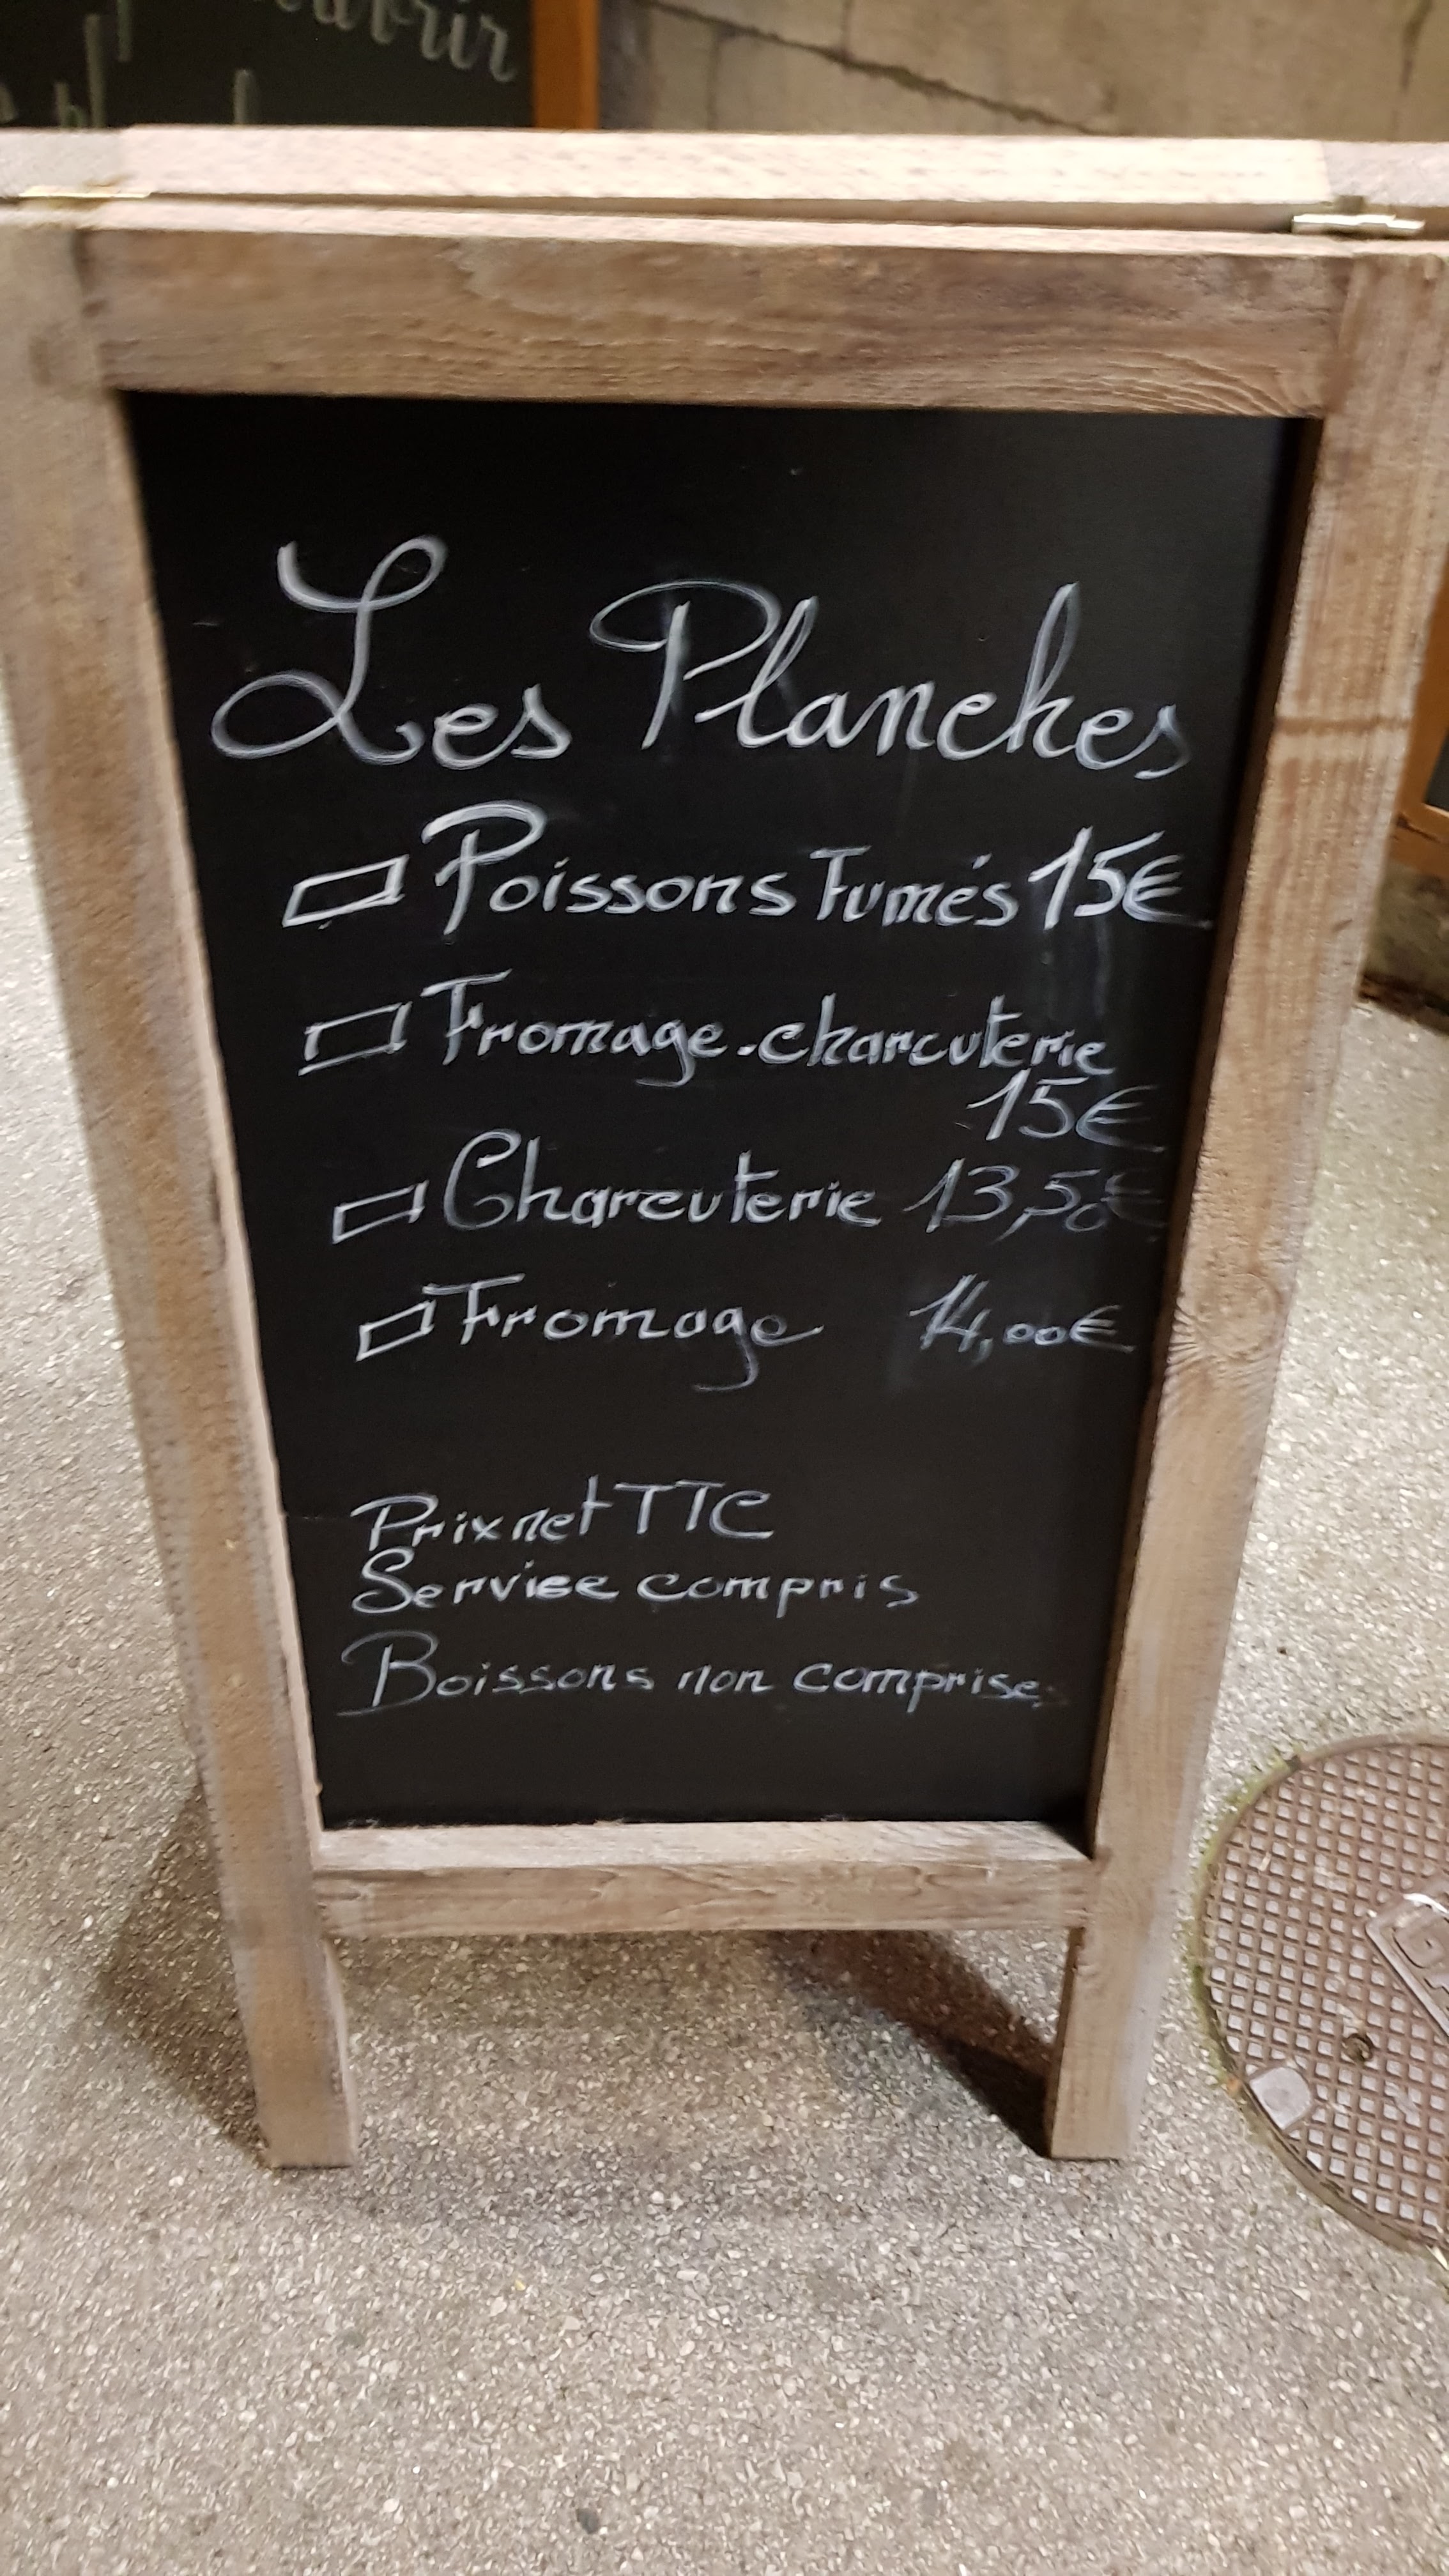 Les Planches
Poissons Fumés 15€
Fromage-charcuterie
15€
Charcuterie 13,50€
Fromage 14,00€
Prix net TTC
Service compris
Boissons non comprises